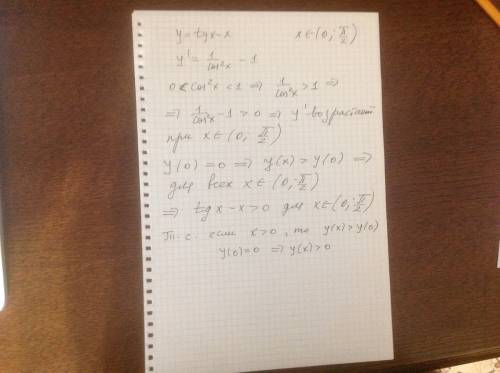 y = tgx - x x ∈ (0; π/2)
y' = 1/cos²x - 1
0 < cos²x < 1 ⇒ 1/cos²x > 1 ⇒
⇒ 1/cos²x - 1 > 0 ⇒ y' - возрастает
при x ∈ (0; π/2)
y(0) = 0 ⇒ y(x) > y(0) ⇒
для всех x ∈ (0; π/2)
⇒ tgx - x > 0 для x ∈ (0; π/2)
Т.е. если x > 0, то y(x) > y(0)
y(0) = 0 ⇒ y(x) > 0